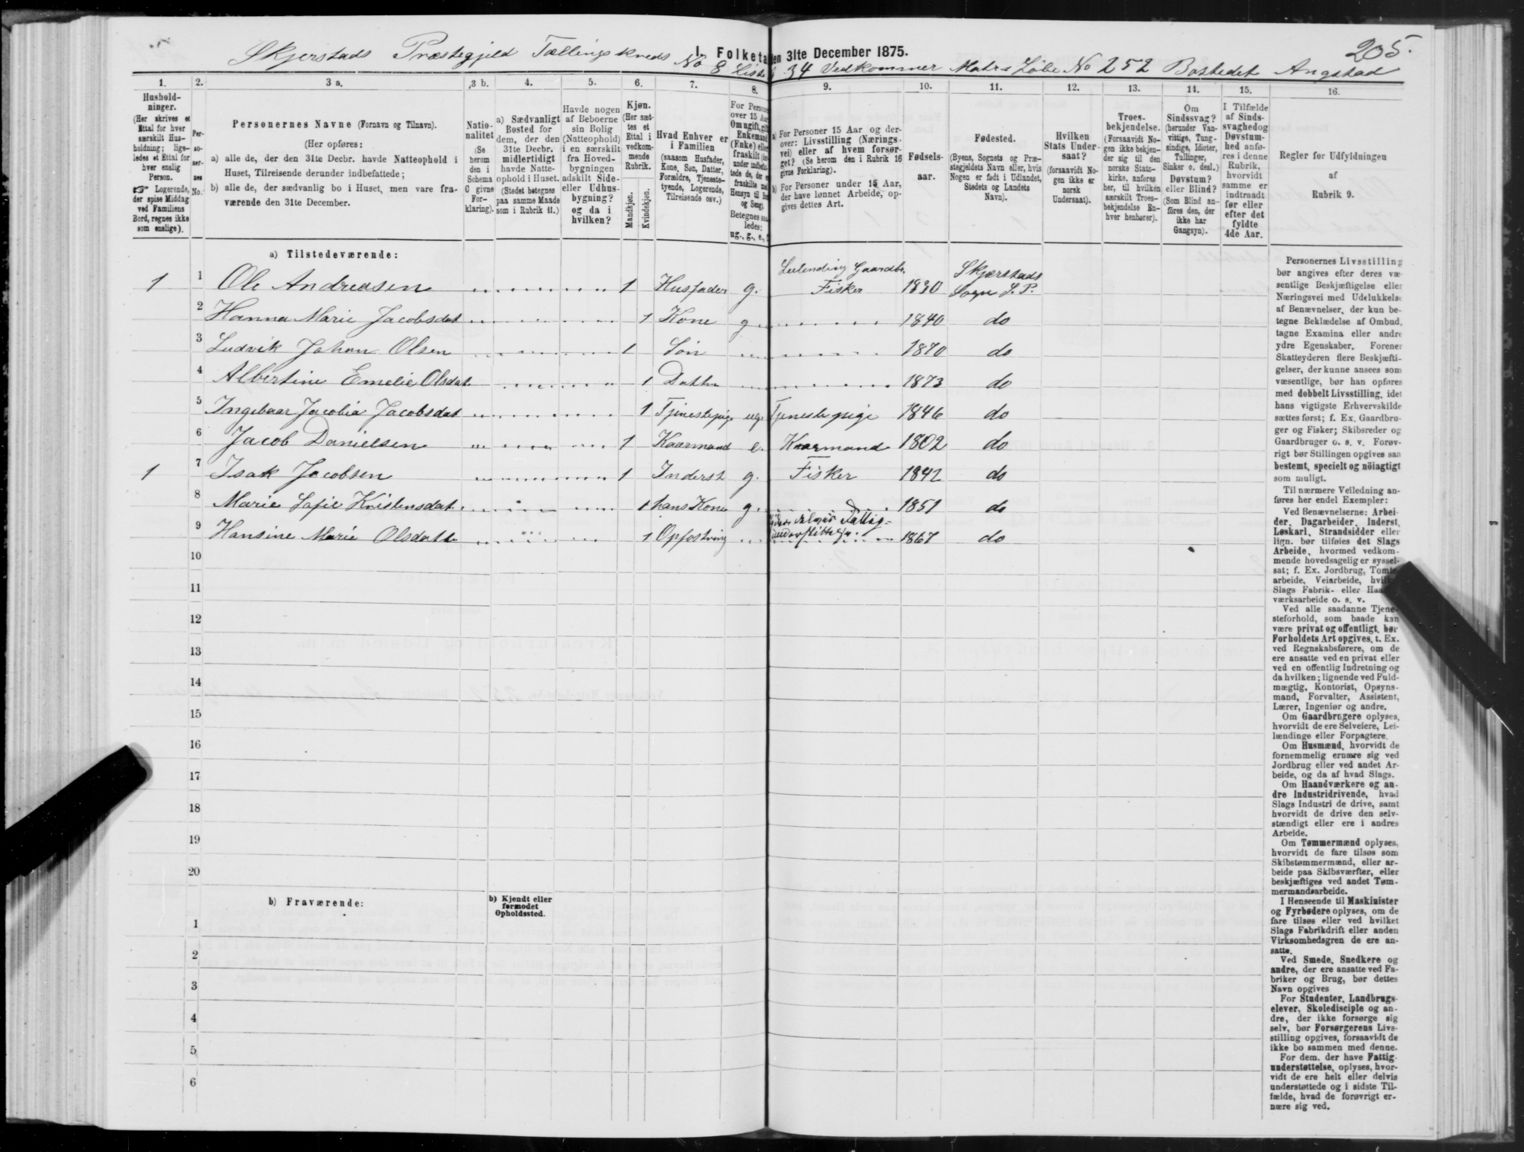 205.
I. Folketæ en 31te December 1875.
Skjerstads Præstegjeld Tællingskreds No 8 Liste 34 Vedkommer Matr. Løbe No 252 Bostedet Angstad
1. 2. 3 a. 3 b. 4. 5. 6. 7. 8. 9. 10. 11. 12. 13. 14. 15. 16.
Hushold-
ninger.
(Her skrives et
Ettal for hver
særskilt Hus-
holdning; lige-
ledes et Ettal for
hver enslig
Person.
☞ Logerende,
der spise Middag
ved Familiens
Bord, regnes ikke
som enslige).
Per-
so-
ner-
nes
No.
Personernes Navne (Fornavn og Tilnavn).
(Her opføres:
a) alle de, der den 31te Decbr. havde Natteophold i
Huset, Tilreisende derunder indbefattede;
b) alle de, der sædvanlig bo i Huset, men vare fra-
værende den 31te December.
Natio-
nalitet
(Se
herom
den i
Schema
C givne
For-
klaring).
a) Sædvanligt
Bosted for
dem, der den
31te Decbr.
midlertidigt
havde Natte-
ophold i Huset.
(Stedet betegnes
paa samme Maade
som i Rubrik 11.)
Havde nogen
af Beboerne
sin Bolig
(Natteophold)
i en særskilt
fra Hoved-
bygningen
adskilt Side-
eller Udhus-
bygning?
og da i
hvilken?
Kjøn.
(Her sæt-
tes et
Ettal i
vedkom-
mende
Rubrik.
Mandkjøn.
Kvindekjøn.
Hvad Enhver er
i Familien
(saasom Husfader,
Kone, Søn, Datter,
Forældre, Tjeneste-
tyende, Logerende,
Tilreisende osv.)
For Person
over 15 Aar
Om ugift, gift
Enkemand
(Enke) eller
fraskilt
Betegnes saa-
ledes:
ug., g., e., f.
a) For Personer 15 Aar og der-
over: Livsstilling (Nærings-
vei) eller af hvem forsør-
get? (Se herom den i Rubrik 16
givne Forklaring).
b) For Personer under 15 Aar,
der have lønnet Arbeide, op-
gives dettes Art.
Fødsels-
aar.
Fødested.
(Byens, Sognets og Præ-
stegjeldets Navn eller, hvis
Nogen er født i Udlandet,
Stedets og Landets
Navn).
Hvilken
Stats Under-
saat?
(forsaavidt No-
gen ikke er
norsk
Undersaat).
Troes-
bekjendelse.
(Forsaavidt No-
gen ikke bekjen-
der sig til den
norske Stats-
kirke, anføres
her, til hvilken
særskilt Troes-
bekjendelse En-
hver henhører).
Om
Sindssvag?
(herunder Van-
vittige, Tung-
sindige, Idioter,
Tullinger,
Sinker o. desl.)
Døvstum?
eller Blind?
(Som Blind an-
føres den, der
ikke har
Gangsyn).
I Tilfælde
af Sinds-
svaghed og
Døvstum-
hed anfø-
res i denne
Rubrik,
hvorvidt
samme er
indtraadt
før eller
efter det
fyldte
4de Aar.
Regler for Udfyldningen
af
Rubrik 9.
a) Tilstedeværende:
1 1 Ole Andreasen 1 Husfader g. Leilending Gaardbr. Fisker 1830 Skjærstads Sogn S. P.
2 Hanna Marie Jacobsdat 1 Kone g 1840 do
3 Ludvik Johan Olsen 1 Søn 1870 do
4 Albertine Emelie Olsdat 1 Datter 1873 do
5 Ingebaar Jacobia Jacobsdat 1 Tjenestepige ug. Tjenestepige 1846 do
6 Jacob Danielsen 1 Kaarmand e. Kaarmand 1802 do
1 7 Isak Jacobsen 1 Inderst g. Fisker 1842 do
8 Marie Sofie Kristensdat. 1 hans Kone g. 1851 do
9 Hansine Marie Olsdatte 1 Opfostring delvis Fattig- understøttelse 1867 do
10
11
12
13
14
15
16
17
18
19
20
b) Fraværende:
b) Kjendt eller
formodet
Opholdssted.
1
2
3
4
5
6
Personernes Livsstilling
bør angives efter deres væ-
sentlige Beskjæftigelse eller
Næringsvei med Udelukkelse
af Benævnelser, der kun be-
tegne Beklædelse af Ombud,
tagne Examina eller andre
ydre Egenskaber. Forener
Skatteyderen flere Beskjæfti-
gelser, der kunne ansees som
væsentlige, bør han opføres
med dobbelt Livsstilling, idet
hans vigtigste Erhvervskilde
sættes først; f. Ex. Gaardbru-
ger og Fisker; Skibsreder og
Gaardbruger o. s. v. Forøv-
rigt bør Stillingen opgives saa
bestemt, specielt og nöiagtigt
som muligt.
Til nærmere Veiledning an-
føres her endel Exempler:
Ved Benævnelserne: Arbei-
der, Dagarbeider, Inderst,
Løskarl, Strandsidder eller
lign. bør tilføies det Slags
Arbeide, hvormed vedkom-
mende hovedsagelig er syssel-
sat; f. Ex. Jordbrug, Tomte-
arbeide, Veiarbeide, hvilket
Slags Fabrik- eller Haand-
værksarbeide o. s. v.
Ved alle saadanne Tjene-
steforhold, som baade kan
være privat og offentligt, bør
Forholdets Art opgives, t. Ex.
ved Regnskabsførere, om de
ere ansatte ved en privat eller
ved en offentlig Indretning og
da hvilken; lignende ved Fuld-
mægtig, Kontorist, Opsyns-
mand, Forvalter, Assistent,
Lærer, Ingeniør og andre.
Om Gaardbrugere oplyses,
hvorvidt de ere Selveiere, Lei-
lændinge eller Forpagtere.
Om Husmænd, hvorvidt de
fornemmelig ernære sig ved
Jordbrug eller ved andet Ar-
beide, og da af hvad Slags.
Om Haandværkere og an-
dre Industridrivende, hvad
Slags Industri de drive, samt
hvorvidt de drive den selv-
stændigt eller ere i andres
Arbeide.
Om Tømmermænd oplyses,
hvorvidt de fare tilsøs som
Skibstømmermænd, eller ar-
beide paa Skibsværfter, eller
beskjæftiges ved andet Tøm-
mermandsarbeide.
I Henseende til Maskinister
og Fyrbødere oplyses, om de
fare tilsøs eller ved hvilket
Slags Fabrikdrift eller anden
Virksomhedsgren de ere an-
satte.
Ved Smede, Snedkere og
andre, der ere ansatte ved Fa-
briker og Brug, bør dettes
Navn opgives
For Studenter, Landbrugs-
elever, Skoledisciple og an-
dre, der ikke forsørge sig
selv, bør Forsørgerens Livs-
stilling opgives, forsaavidt de
ikke bo sammen med denne.
For dem, der have Fattig-
understøttelse, oplyses, hvor-
vidt de ere helt eller delvis
understøttede og i sidste Til-
fælde, hvad de forøvrigt er-
nære sig ved.